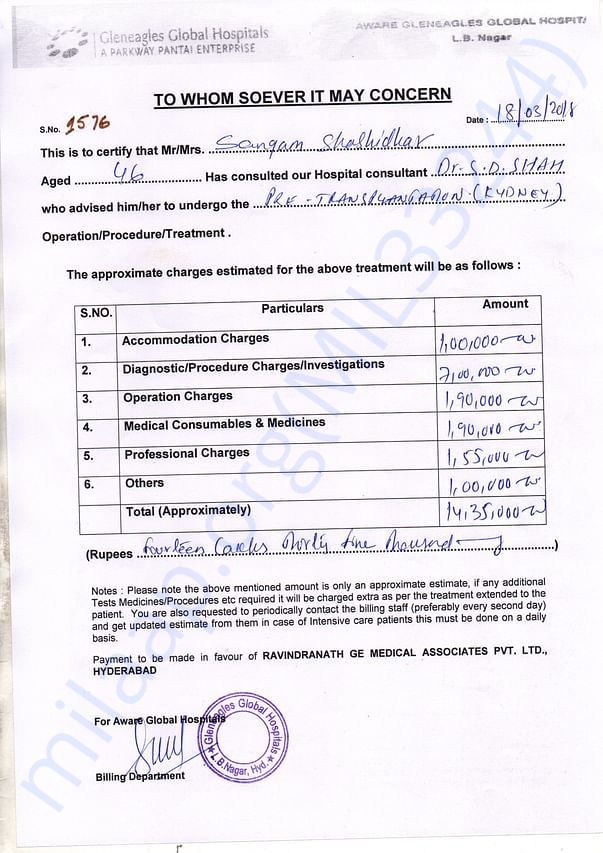 Gleneagles Global Hospitals
A PARKWAY PANTAI ENTERPRISE
AWARE GLENEAGLES GLOBAL HOSPITA
L.B. Nagar
TO WHOM SOEVER IT MAY CONCERN
S.No. 1576
Date : 18/03/2018
This is to certify that Mr/Mrs. Sangam Shashidhar
Aged 46 Has consulted our Hospital consultant Dr. S.D. SHAH
who advised him/her to undergo the PRE - TRANSPLANTATION (KYDNEY)
Operation/Procedure/Treatment .
The approximate charges estimated for the above treatment will be as follows :
S.NO. Particulars Amount
1. Accommodation Charges 1,00,000
2. Diagnostic/Procedure Charges/Investigations 7,00,000
3. Operation Charges 1,90,000
4. Medical Consumables & Medicines 1,90,000
5. Professional Charges 1,55,000
6. Others 1,00,000
Total (Approximately) 14,35,000
(Rupees fourteen Thirty five Thousand )
Notes : Please note the above mentioned amount is only an approximate estimate, if any additional
Tests Medicines/Procedures etc required it will be charged extra as per the treatment extended to the
patient. You are also requested to periodically contact the billing staff (preferably every second day)
and get updated estimate from them in case of Intensive care patients this must be done on a daily
basis.
Payment to be made in favour of RAVINDRANATH GE MEDICAL ASSOCIATES PVT. LTD.,
HYDERABAD
For Aware Global Hospitals
Gleneagles Global Hospitals
L.B.Nagar, Hyd.
Billing Department
milaap.org(MIL33244)